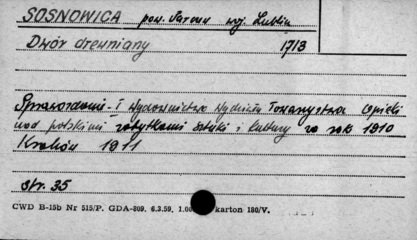 SOSNOWICA pow. Parczew woj. Lublin
Dwór drewniany 1713
Sprawozdanie i Wydawnictwo Wydziału Towarzystwa Opieki
nad polskimi zabytkami sztuki i kultury za rok 1910
Kraków 1911
str. 35
CWD B-15b Nr 515/P. GDA-809. 6.3.59. 1.00 karton 180/V.